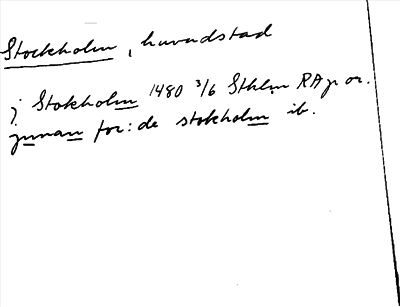 Stockholm, huvudstad
j Stokholm 1480 3/6 Sthlm RAp or.
innan for: de stokholm ib.